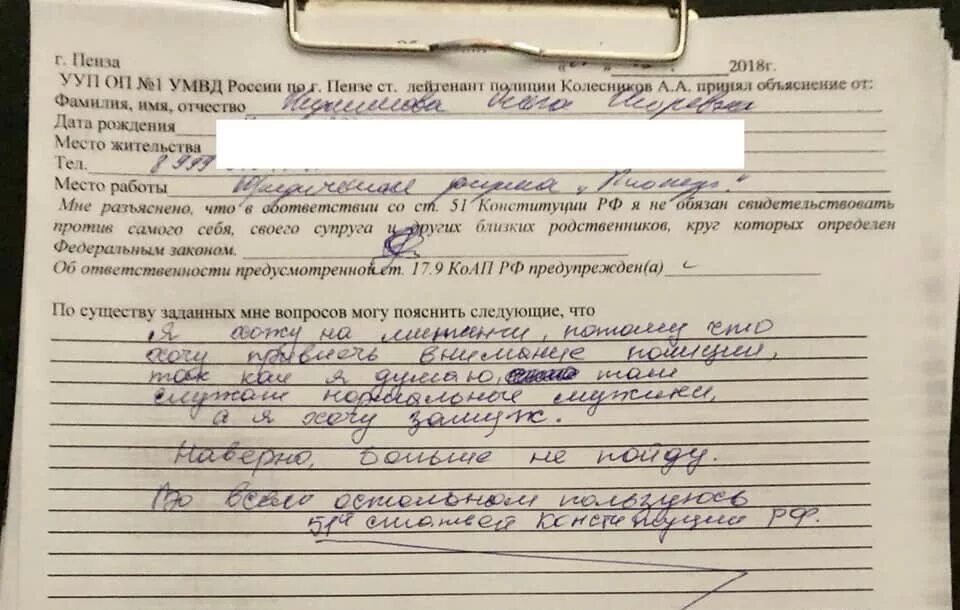 г. Пенза 2018г.
УУП ОП №1 УМВД России по г. Пензе ст. лейтенант полиции Колесников А.А. принял объяснение от:
Фамилия, имя, отчество
Дата рождения
Место жительства
Тел. 8 999
Место работы Юридическая фирма „Пионер."
Мне разъяснено, что в соответствии со ст. 51 Конституции РФ я не обязан свидетельствовать
против самого себя, своего супруга и других близких родственников, круг которых определен
Федеральным законом.
Об ответственности предусмотренной ст. 17.9 КоАП РФ предупрежден(а)
По существу заданных мне вопросов могу пояснить следующие, что
Я хожу на митинги, потому что
хочу привлечь внимание полиции,
так как я думаю, там
служат нормальные мужики,
а я хочу замуж.
Наверно, больше не пойду.
Во всем остальном пользуюсь
51й статьей Конституции РФ.